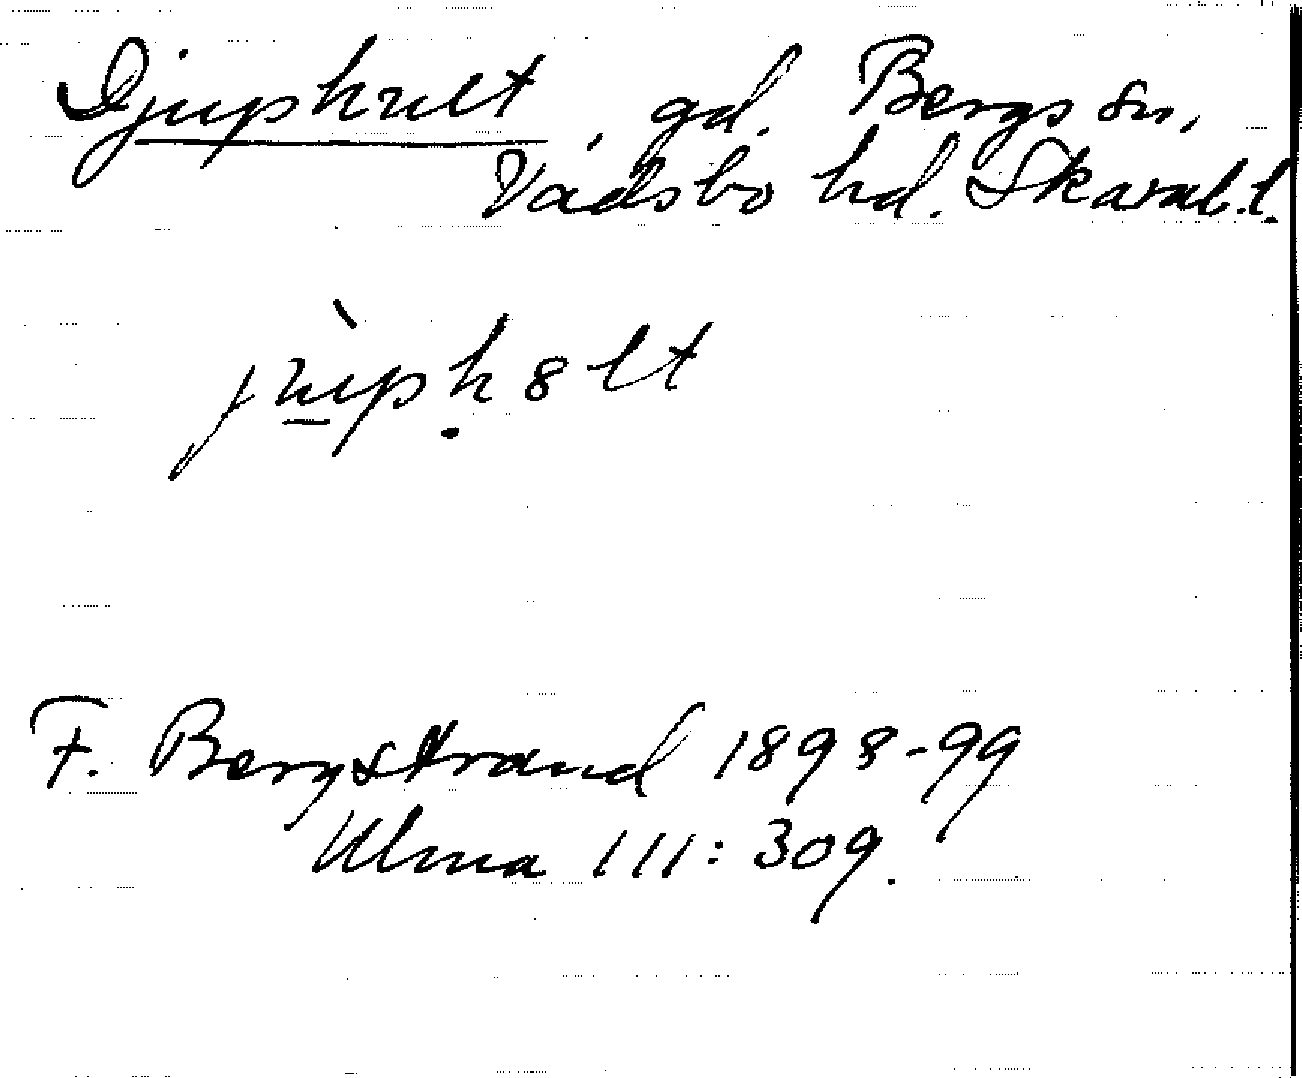 Djuphult, gd. Bergs sn,
Vadsbo hd. Skarab.l.
jùph8lt
F. Bergstrand 1898-99
Ulma 111:309.